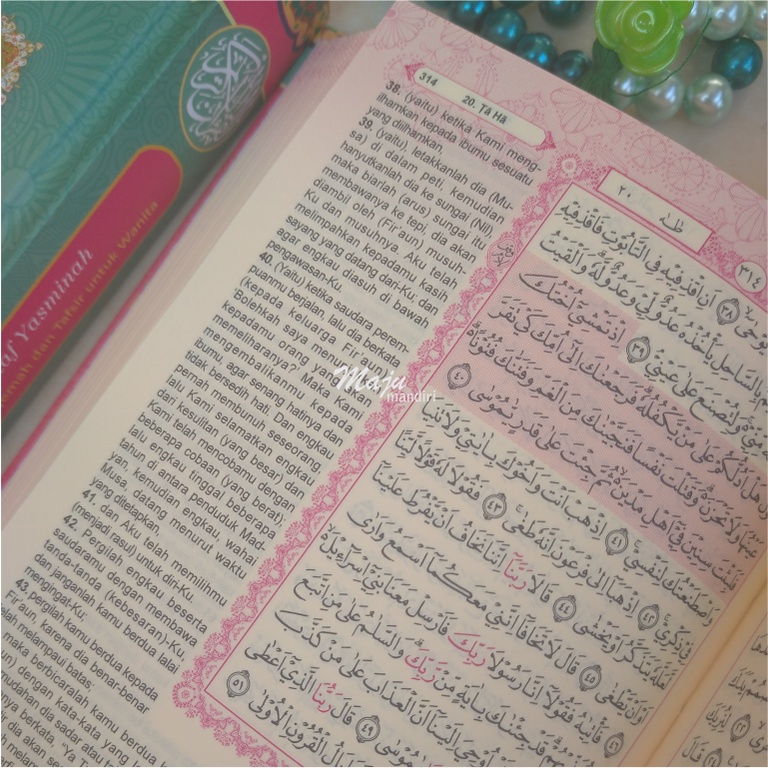 af Yasminah
dan Tafsir untuk Wanita
314 20. Ṭā Hā
38. (yaitu) ketika Kami meng-
ilhamkan kepada ibumu sesuatu
yang diilhamkan.
39. (yaitu), letakkanlah dia (Mu-
sa) di dalam peti, kemudian
hanyutkanlah dia ke sungai (Nil),
maka biarlah (arus) sungai itu
membawanya ke tepi, dia akan
diambil oleh (Fir'aun) musuh-
Ku dan musuhnya. Aku telah
melimpahkan kepadamu kasih
sayang yang datang dari-Ku; dan
agar engkau diasuh di bawah
pengawasan-Ku.
40. (Yaitu) ketika saudara perem-
puanmu berjalan, lalu dia berkata
(kepada keluarga Fir'aun),
'Bolehkah saya menunjukkan
kepadamu orang yang akan
memeliharanya? Maka Kami
mengembalikanmu kepada
ibumu, agar senang hatinya dan
tidak bersedih hati. Dan engkau
pernah membunuh seseorang,
lalu Kami selamatkan engkau
dari kesulitan (yang besar) dan
Kami telah mencobamu dengan
beberapa cobaan (yang berat);
lalu engkau tinggal beberapa
tahun di antara penduduk Mad-
yan, kemudian engkau, wahai
Musa, datang menurut waktu
yang ditetapkan,
41. dan Aku telah memilihmu
(menjadi rasul) untuk diri-Ku.
42. Pergilah engkau beserta
saudaramu dengan membawa
tanda-tanda (kebesaran)-Ku
dan janganlah kamu berdua lalai
mengingat-Ku;
43. pergilah kamu berdua kepada
Fir'aun, karena dia benar-benar
telah melampaui batas;
maka berbicaralah kamu berdua
dengan kata-kata yang
mudahan dia sadar atau
berkata, "Ya
dia akan
٢٠ طٰهٰ ٣١٤
٣٨ اَنِ اقْذِفِيْهِ فِى التَّابُوْتِ فَاقْذِفِيْهِ
السَّاحِلِ يَأْخُذْهُ عَدُوٌّ لِّيْ وَعَدُوٌّ لَّهٗ وَاَلْقَيْتُ
وَلِتُصْنَعَ عَلٰى عَيْنِيْ ٣٩ اِذْ تَمْشِيْٓ اُخْتُكَ
اَدُلُّكُمْ عَلٰى مَنْ يَّكْفُلُهٗ فَرَجَعْنٰكَ اِلٰٓى اُمِّكَ كَيْ تَقَرَّ
عَيْنُهَا وَلَا تَحْزَنَ وَقَتَلْتَ نَفْسًا فَنَجَّيْنٰكَ مِنَ الْغَمِّ وَفَتَنّٰكَ فُتُوْنًا
فَلَبِثْتَ سِنِيْنَ فِيْٓ اَهْلِ مَدْيَنَ ثُمَّ جِئْتَ عَلٰى قَدَرٍ يّٰمُوْسٰى ٤٠
وَاصْطَنَعْتُكَ لِنَفْسِيْ ٤١ اِذْهَبْ اَنْتَ وَاَخُوْكَ بِاٰيٰتِيْ وَلَا تَنِيَا
فِيْ ذِكْرِيْ ٤٢ اِذْهَبَآ اِلٰى فِرْعَوْنَ اِنَّهٗ طَغٰى ٤٣ فَقُوْلَا لَهٗ قَوْلًا لَّيِّنًا
لَّعَلَّهٗ يَتَذَكَّرُ اَوْ يَخْشٰى ٤٤ قَالَا رَبَّنَآ اِنَّنَا نَخَافُ اَنْ يَّفْرُطَ عَلَيْنَآ
اَوْ اَنْ يَّطْغٰى ٤٥ قَالَ لَا تَخَافَآ اِنَّنِيْ مَعَكُمَآ اَسْمَعُ وَاَرٰى
٤٦ فَأْتِيٰهُ فَقُوْلَآ اِنَّا رَسُوْلَا رَبِّكَ فَاَرْسِلْ مَعَنَا بَنِيْٓ اِسْرَاۤءِيْلَ
قَدْ جِئْنٰكَ بِاٰيَةٍ مِّنْ رَّبِّكَ وَالسَّلٰمُ عَلٰى مَنِ اتَّبَعَ
اُوْحِيَ اِلَيْنَآ اَنَّ الْعَذَابَ عَلٰى مَنْ كَذَّبَ
٤٩ قَالَ رَبُّنَا الَّذِيْٓ اَعْطٰى
الْقُرُوْنِ الْاُوْلٰى ٥١
Maju
mandiri